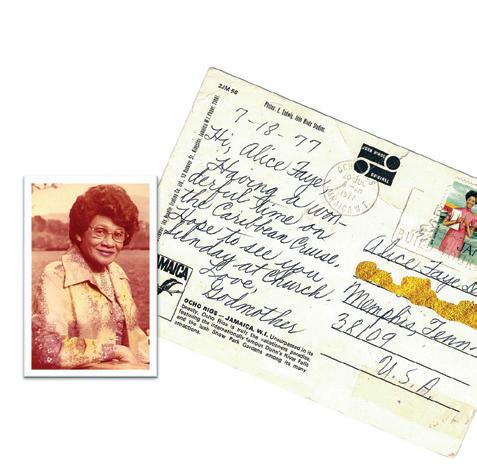 2JM 58
7-18-77
Hi, Alice Faye,
Having a won-
derful time on
the Caribbean Cruise.
Hope to see you
Sunday at Church.
Love,
Godmother
JAMAICA
OCHO RIOS – JAMAICA, W.I. Unsurpassed in its
beauty, Ocho Rios is truly the vacationers paradise,
featuring the internationally famous Dunn's River Falls
and the lush Shaw Park Gardens among its many
attractions.
JOHN HINDE
ORIGINAL
OCHO RIOS
1977
JAMAICA W.I.
Alice Faye
Memphis, Tenn
38109
U.S.A.